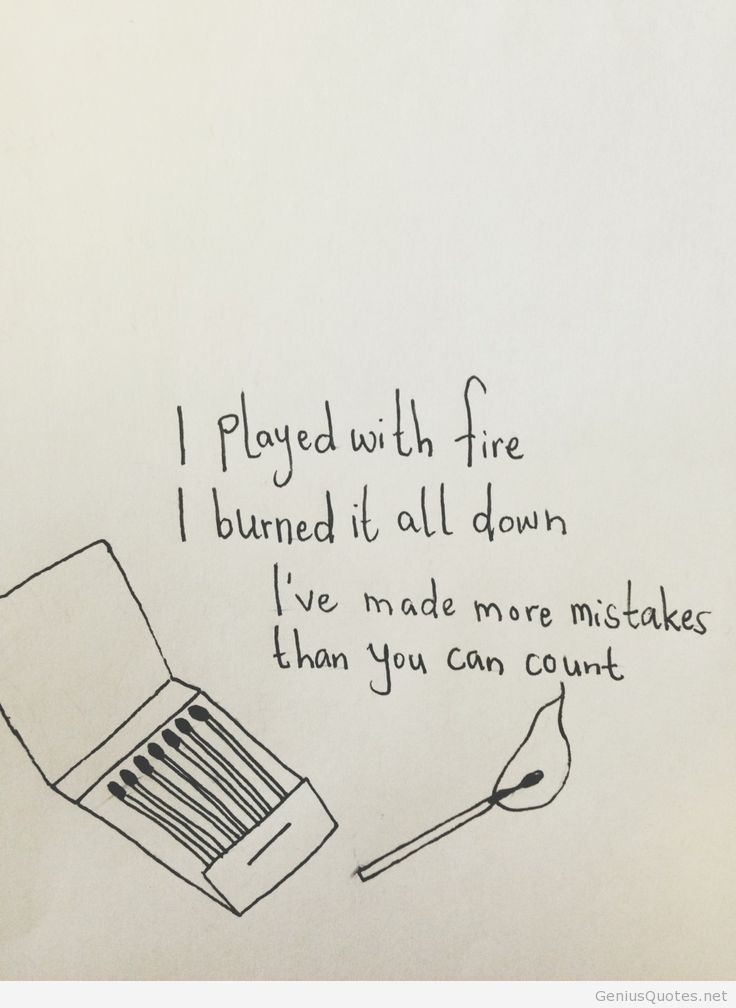 I played with fire
I burned it all down
I've made more mistakes
than you can count
GeniusQuotes.net